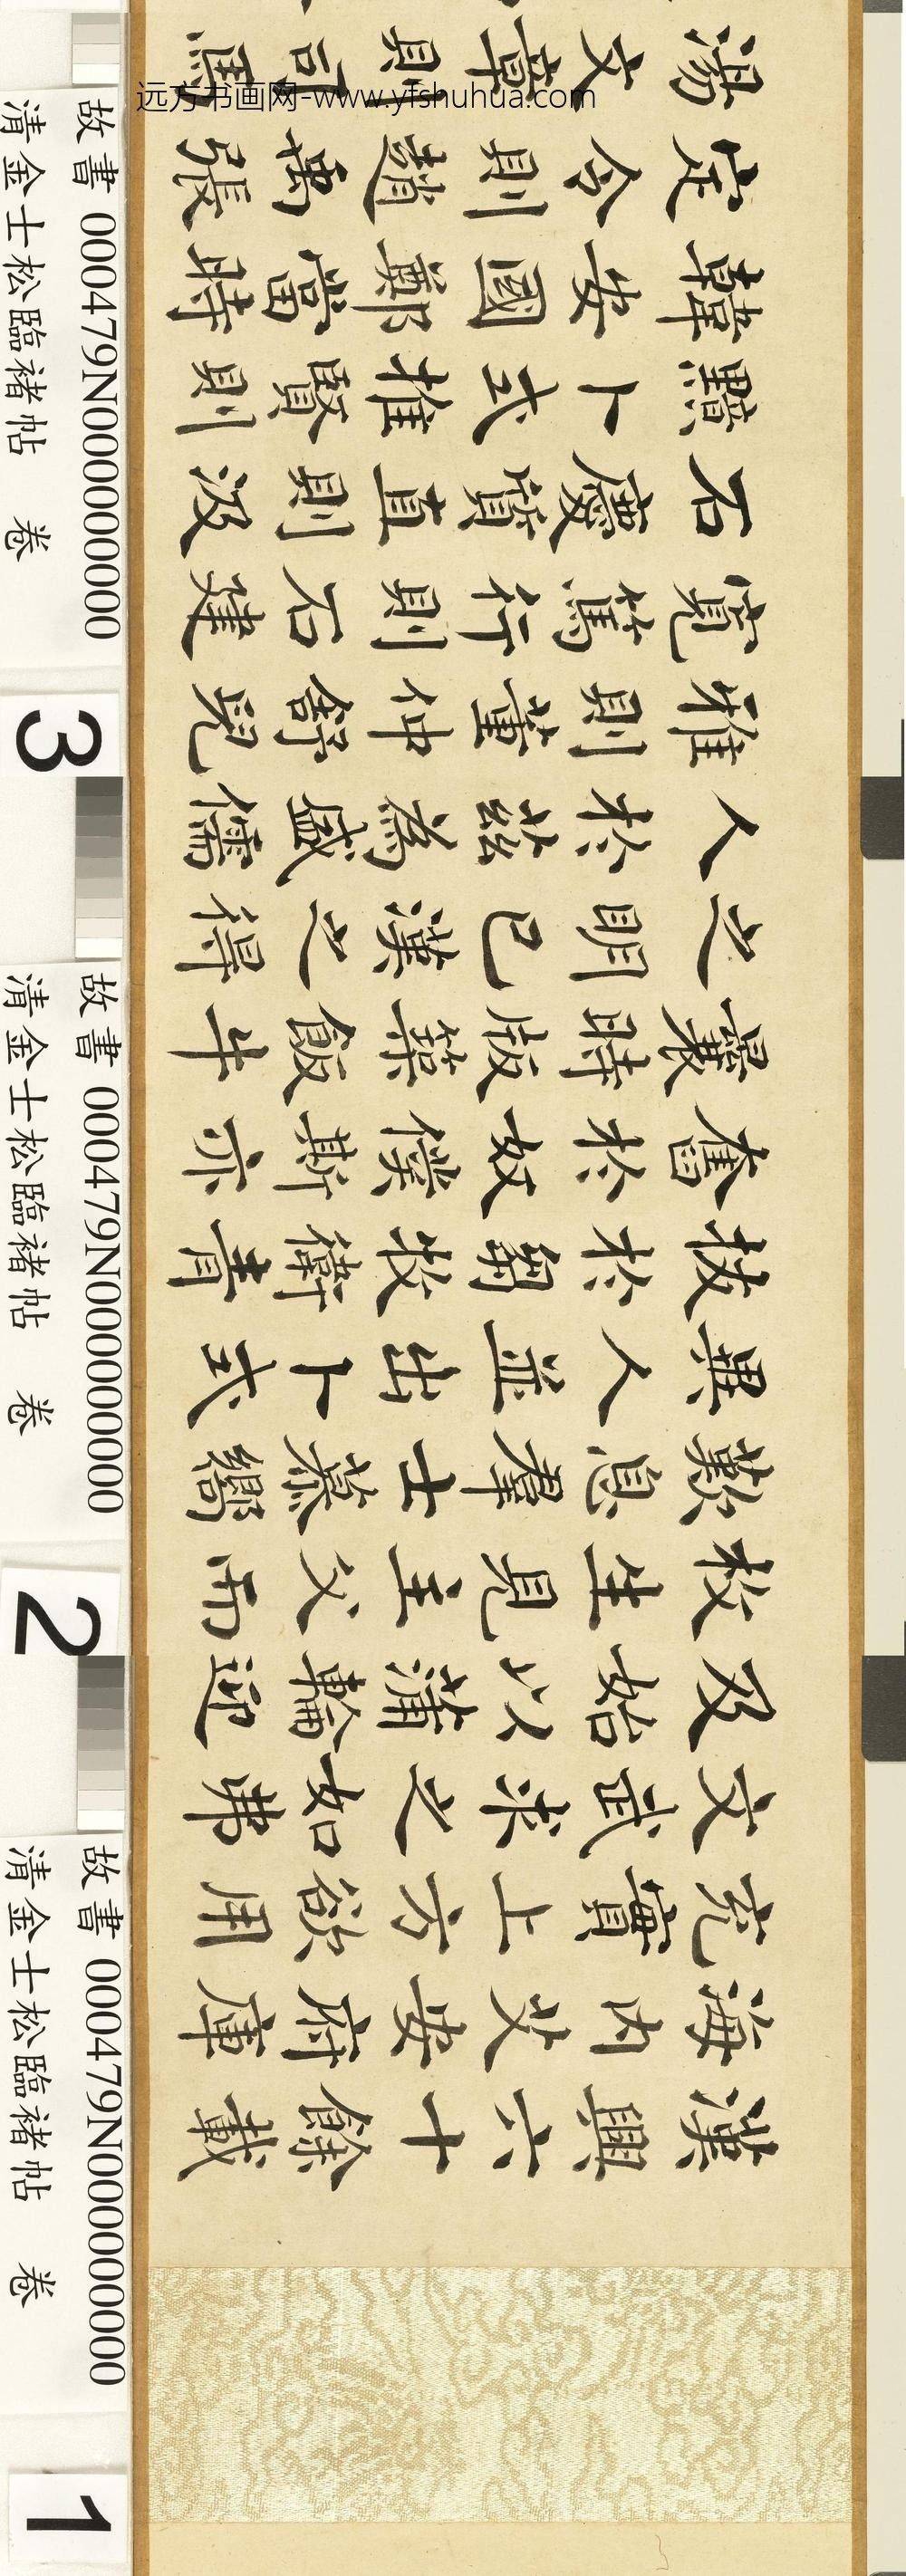 远方书画网-www.yfshuhua.com
漢興六十餘載
海内艾安府庫
充實上方欲用
文武求之如弗
及始以蒲輪迎
枚生見主父而
歎息羣士慕嚮
異人並出卜式
拔於芻牧衛青
奮於奴僕斯亦
曩時版築飯牛
之明已漢之得
人於茲為盛儒
雅則董仲舒兒
寬篤行則石建
石慶質直則汲
黯卜式推賢則
韓安國鄭當時
定令則趙禹張
湯文章則司馬
故書 000479N000000000
清金士松臨褚帖 卷
1
故書 000479N000000000
清金士松臨褚帖 卷
2
故書 000479N000000000
清金士松臨褚帖 卷
3